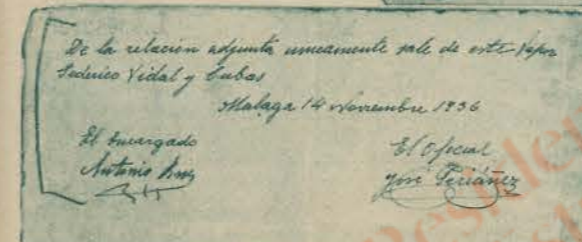 De la relación adjunta unicamente sale de este Vapor
Federico Vidal y Cubas
Malaga 14 noviembre 1936
El encargado
El oficial
Antonio
José Periáñez